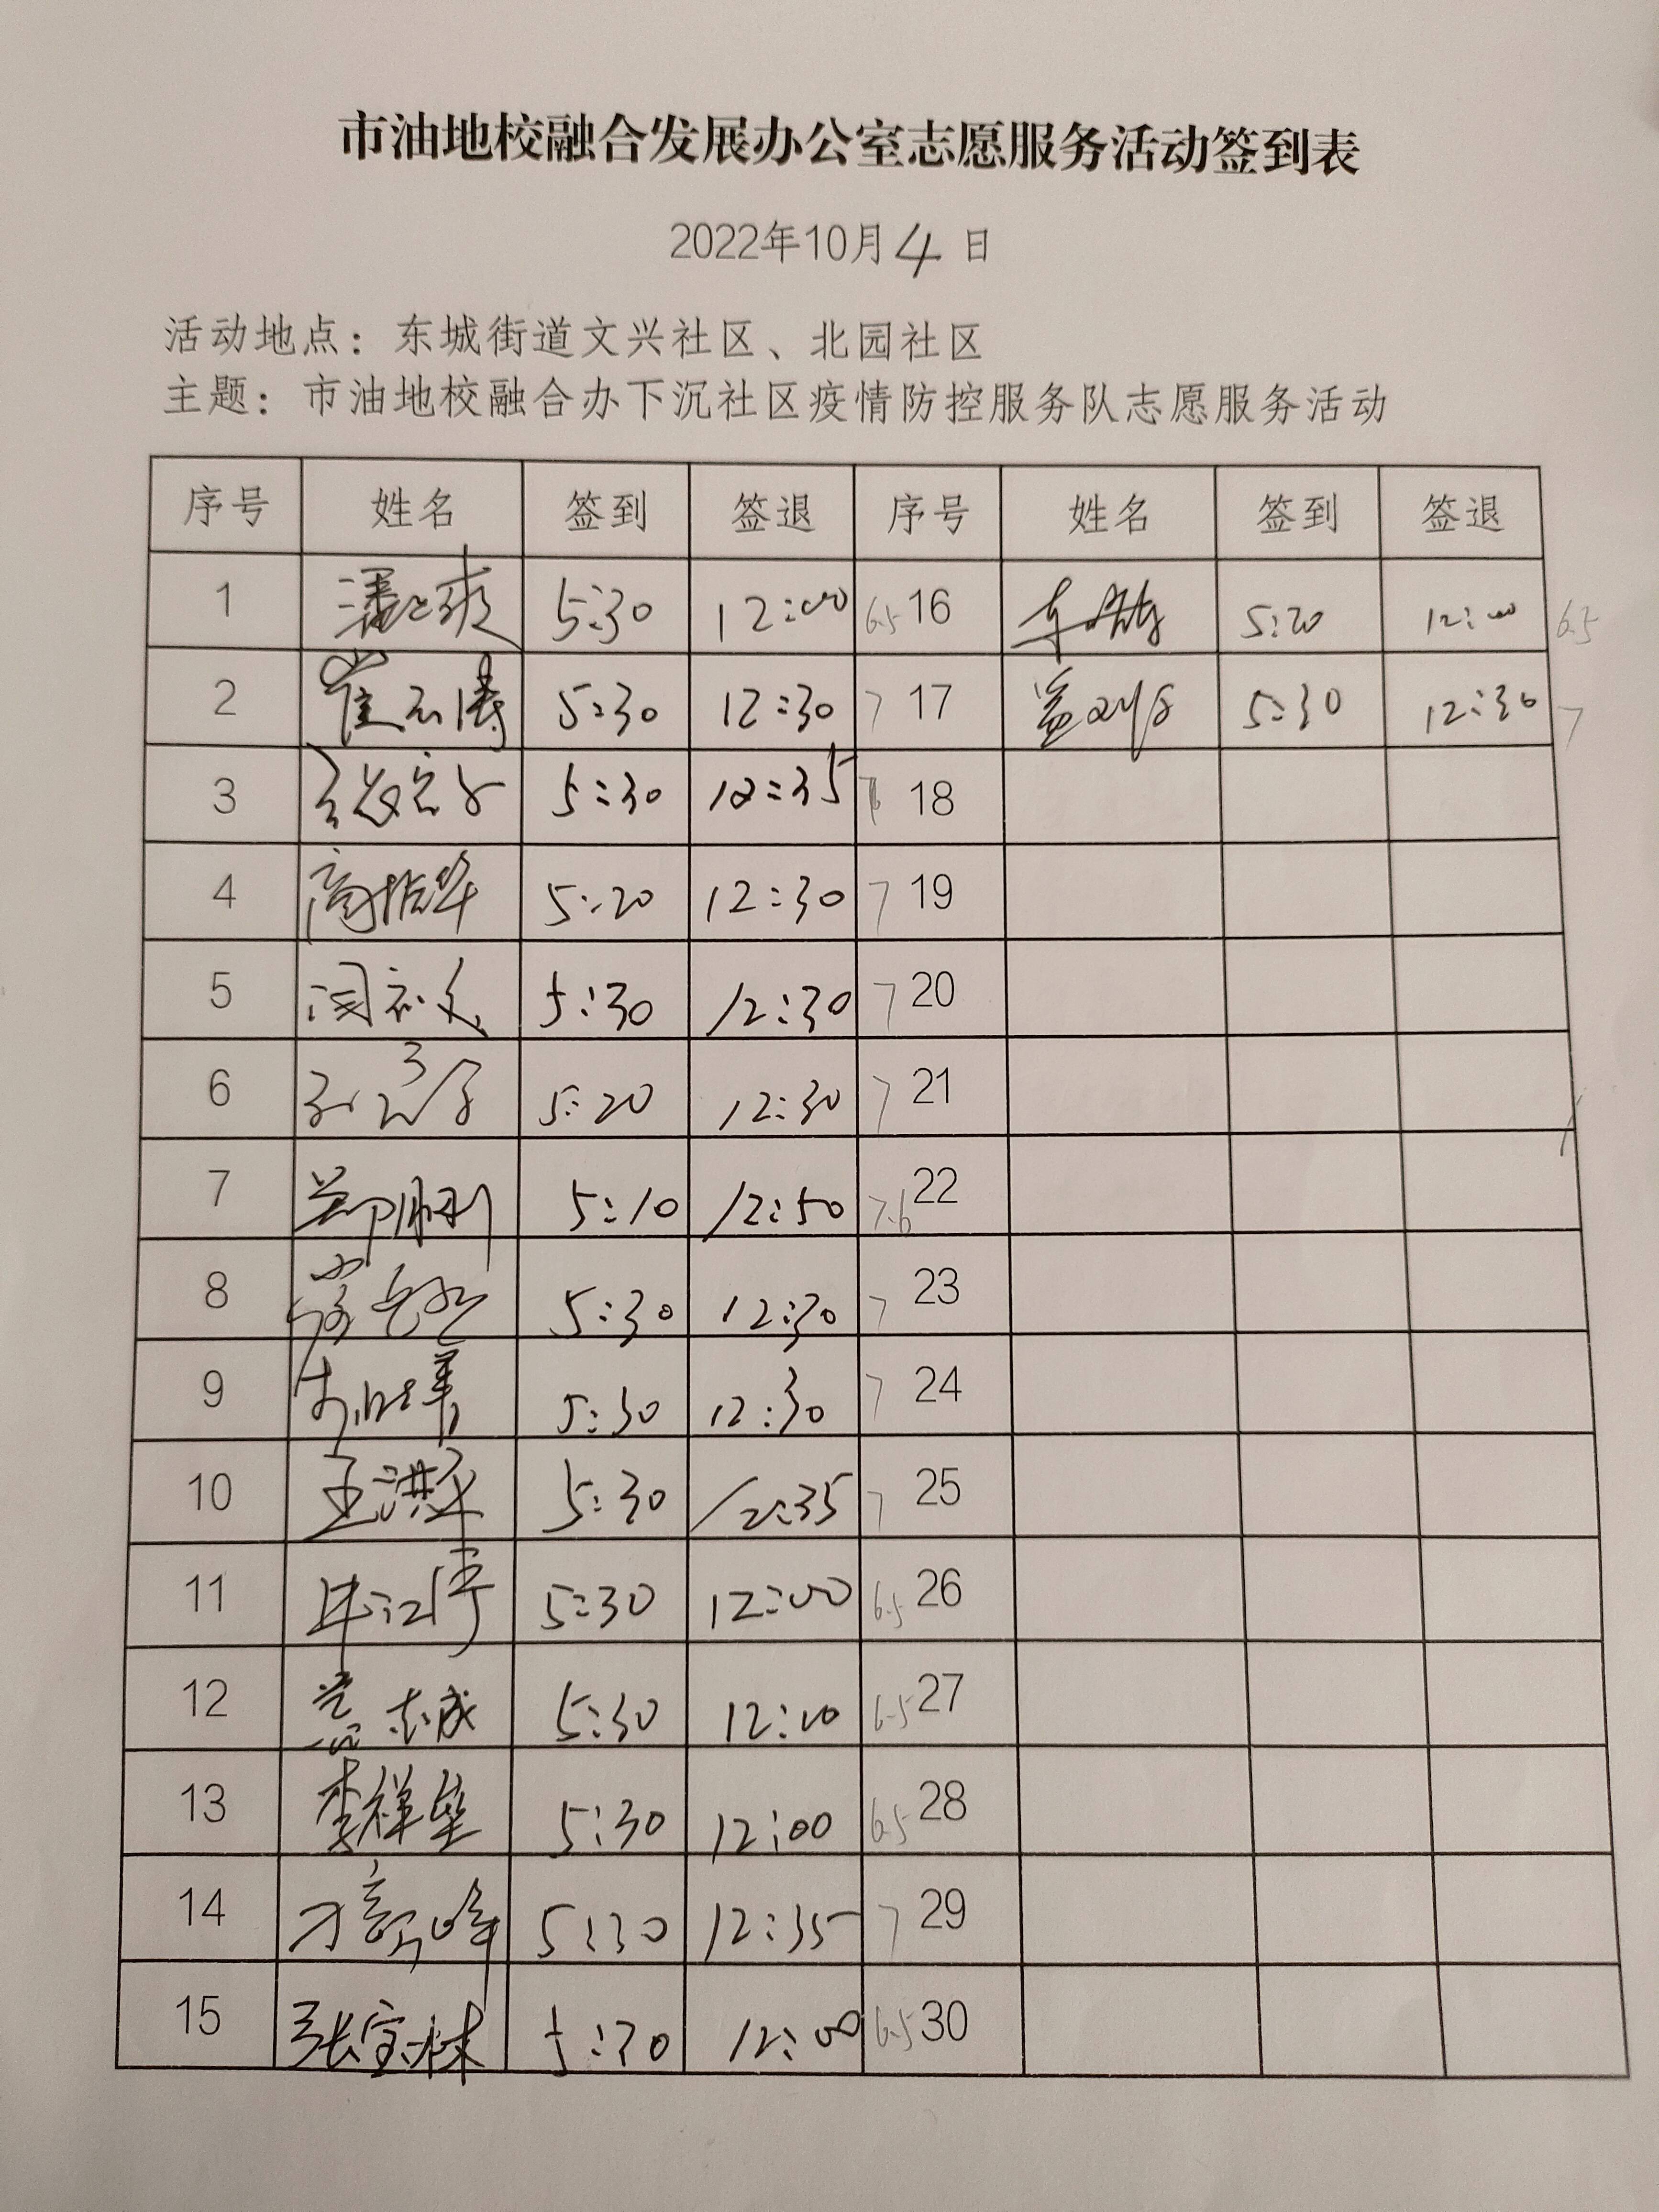 市油地校融合发展办公室志愿服务活动签到表
2022年10月4日
活动地点：东城街道文兴社区、北园社区
主题：市油地校融合办下沉社区疫情防控服务队志愿服务活动
序号 姓名 签到 签退 序号 姓名 签到 签退
1 5:30 12:00 6.5 16 5:20 12:00 6.5
2 崔云涛 5:30 12:30 7 17 5:30 12:30 7
3 5:30 12:35 18
4 5:20 12:30 7 19
5 5:30 12:30 7 20
6 5:20 12:30 7 21
7 5:10 12:50 7.6 22
8 5:30 12:30 7 23
9 5:30 12:30 7 24
10 王洪平 5:30 12:35 7 25
11 5:30 12:00 6.5 26
12 志成 5:30 12:00 6.5 27
13 李祥垒 5:30 12:00 6.5 28
14 5:30 12:35 7 29
15 张宝林 5:30 12:00 6.5 30